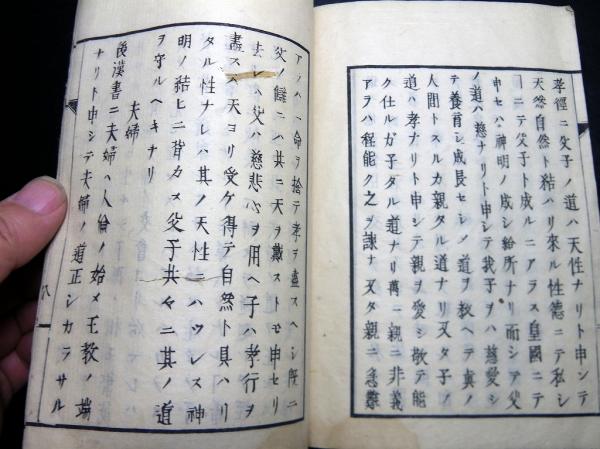 孝徑ニ父子ノ道ハ天性ナリト申シテ
天然自然ト結ハリ來ル性德ニテ私シ
ヿニテ父子ト成ルニアラス皇國ニテ
申セハ神明ノ成シ給所ナリ而シテ父
ノ道ハ慈ナリト申シテ我子ヲハ慈愛シ
テ養育シ成長セシメ道ヲ教ヘテ真ノ
人間トスルカ親タル道ナリ又タ子ノ
道ハ孝ナリト申シテ親ヲ愛シ敬テ能
ク仕ルガ子タル道ナリ萬一親ニ非義
アラハ程能ク之ヲ諫ナ又タ親ニ急難
アラハ一命ヲ捨テ孝ヲ盡スヘシ既ニ
父ノ讎ニハ共ニ天ヲ戴ストモ申セリ
去レハ父ハ慈悲心ヲ用ヘ子ハ孝行ヲ
盡スハ天ヨリ受ケ得テ自然ト具ハリ
タル性ナレハ其ノ天性ニハツレス神
明ノ結ヒニ背カメ父子共々ニ其ノ道
ヲ守ルヘキナリ
夫婦
後漢書ニ夫婦ハ人倫ノ始メ王教ノ端
ナリト申シテ夫婦ノ道正シカラサル
八